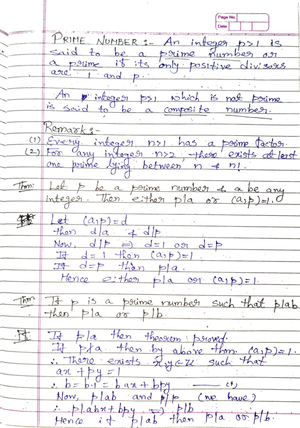 Page No.
Date
PRIME NUMBER :- An integer p>1 is
said to be a prime number or
a prime if its only positive divisors
are 1 and p.
An integer p>1 which is not prime
is said to be a composite number.
Remark :-
(1) Every integer n>1 has a prime factor.
(2) For any integer n>2 there exists at least
one prime lying between n & n!.
Thm: Let p be a prime number & a be any
integer. Then either p|a or (a,p)=1.
Let (a,p)=d
then d|a & d|p
Now, d|p ⇒ d=1 or d=p
If d=1 then (a,p)=1
If d=p than p|a.
Hence either p|a or (a,p)=1.
Thm: If p is a prime number such that p|ab
then p|a or p|b.
If p|a then theorem proved.
If p∤a then by above thm (a,p)=1.
∴ There exists x,y∈Z such that
ax + py = 1
∴ b=b·1 = bax + bpy —(1)
Now, p|ab and p|p (we have)
∴ p|abx+bpy ⇒ p|b
Hence if p|ab then p|a or p|b.